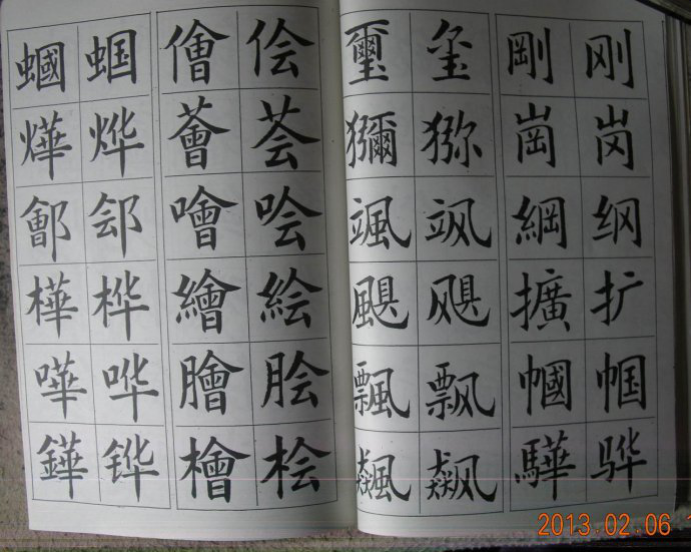 蟈 蝈 儈 侩 璽 玺 剛 刚
燁 烨 薈 荟 獼 猕 崗 岗
鄶 郐 噲 哙 颯 飒 綱 纲
樺 桦 繪 絵 颶 飓 擴 扩
嘩 哗 膾 脍 飄 飘 幗 帼
鏵 铧 檜 桧 飆 飙 驊 骅
2013.02.06